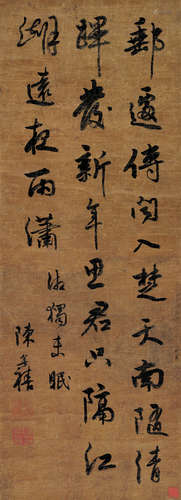 郵邊傳聞入楚天南隨清
蹕發新年思君只隔江
湖遠夜雨瀟湘獨未眠
陳奕禧